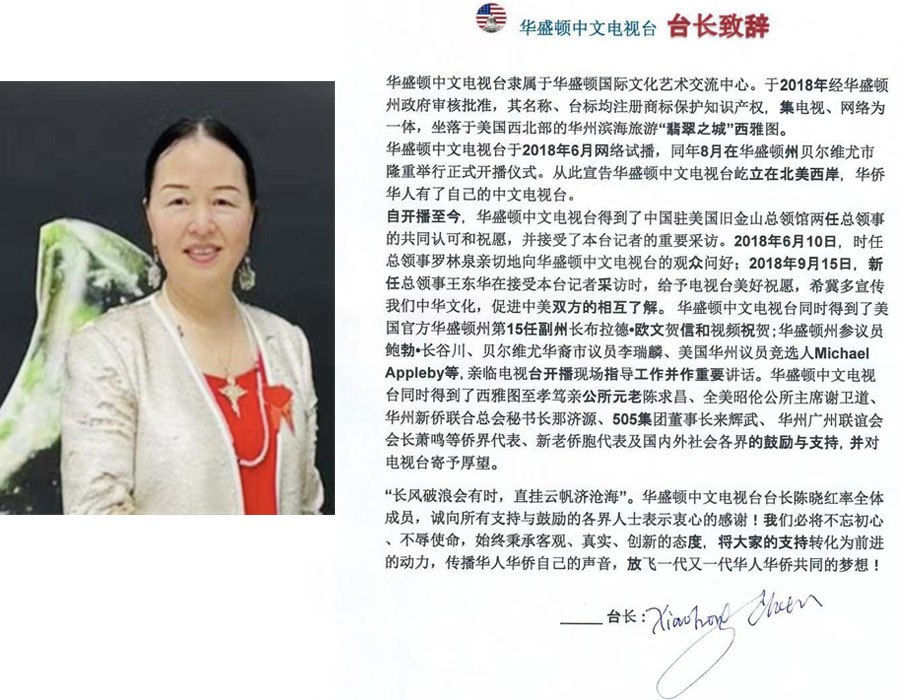 华盛顿中文电视台 台长致辞
华盛顿中文电视台隶属于华盛顿国际文化艺术交流中心。于2018年经华盛顿
州政府审核批准，其名称、台标均注册商标保护知识产权，集电视、网络为
一体，坐落于美国西北部的华州滨海旅游“翡翠之城”西雅图。
华盛顿中文电视台于2018年6月网络试播，同年8月在华盛顿州贝尔维尤市
隆重举行正式开播仪式。从此宣告华盛顿中文电视台屹立在北美西岸，华侨
华人有了自己的中文电视台。
自开播至今，华盛顿中文电视台得到了中国驻美国旧金山总领馆两任总领事
的共同认可和祝愿，并接受了本台记者的重要采访。2018年6月10日，时任
总领事罗林泉亲切地向华盛顿中文电视台的观众问好；2018年9月15日，新
任总领事王东华在接受本台记者采访时，给予电视台美好祝愿，希冀多宣传
我们中华文化，促进中美双方的相互了解。 华盛顿中文电视台同时得到了美
国官方华盛顿州第15任副州长布拉德•欧文贺信和视频祝贺;华盛顿州参议员
鲍勃•长谷川、贝尔维尤华裔市议员李瑞麟、美国华州议员竞选人Michael
Appleby等, 亲临电视台开播现场指导工作并作重要讲话。华盛顿中文电视
台同时得到了西雅图至孝笃亲公所元老陈求昌、全美昭伦公所主席谢卫道、
华州新侨联合总会秘书长那济源、505集团董事长来辉武、 华州广州联谊会
会长萧鸣等侨界代表、新老侨胞代表及国内外社会各界的鼓励与支持, 并对
电视台寄予厚望。
“长风破浪会有时，直挂云帆济沧海”。华盛顿中文电视台台长陈晓红率全体
成员，诚向所有支持与鼓励的各界人士表示衷心的感谢！我们必将不忘初心
、不辱使命，始终秉承客观、真实、创新的态度，将大家的支持转化为前进
的动力，传播华人华侨自己的声音，放飞一代又一代华人华侨共同的梦想！
台长：Xiaohong Chen